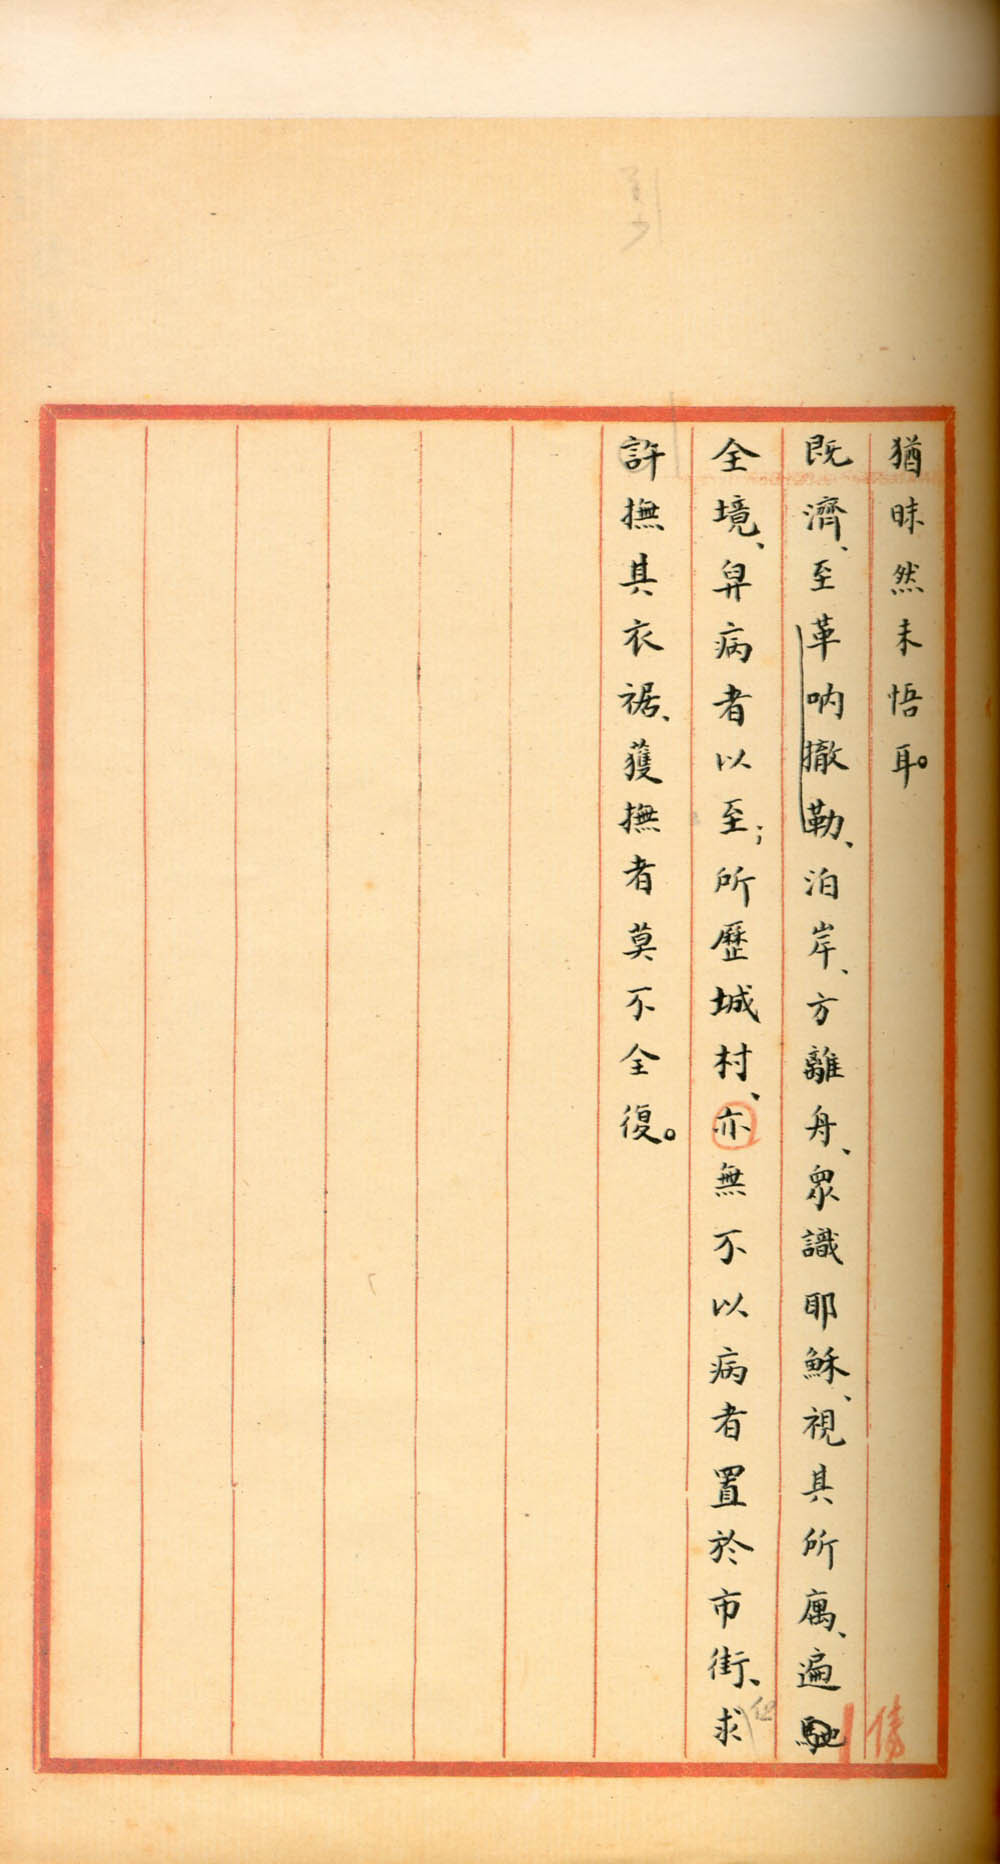 猶昧然未悟耳。
既濟、至革吶撒勒、泊岸、方離舟、眾識耶穌、視其所厲、遍馳
全境、舁病者以至；所歷城村、亦無不以病者置於市街、求
許撫其衣裾、獲撫者莫不全復。